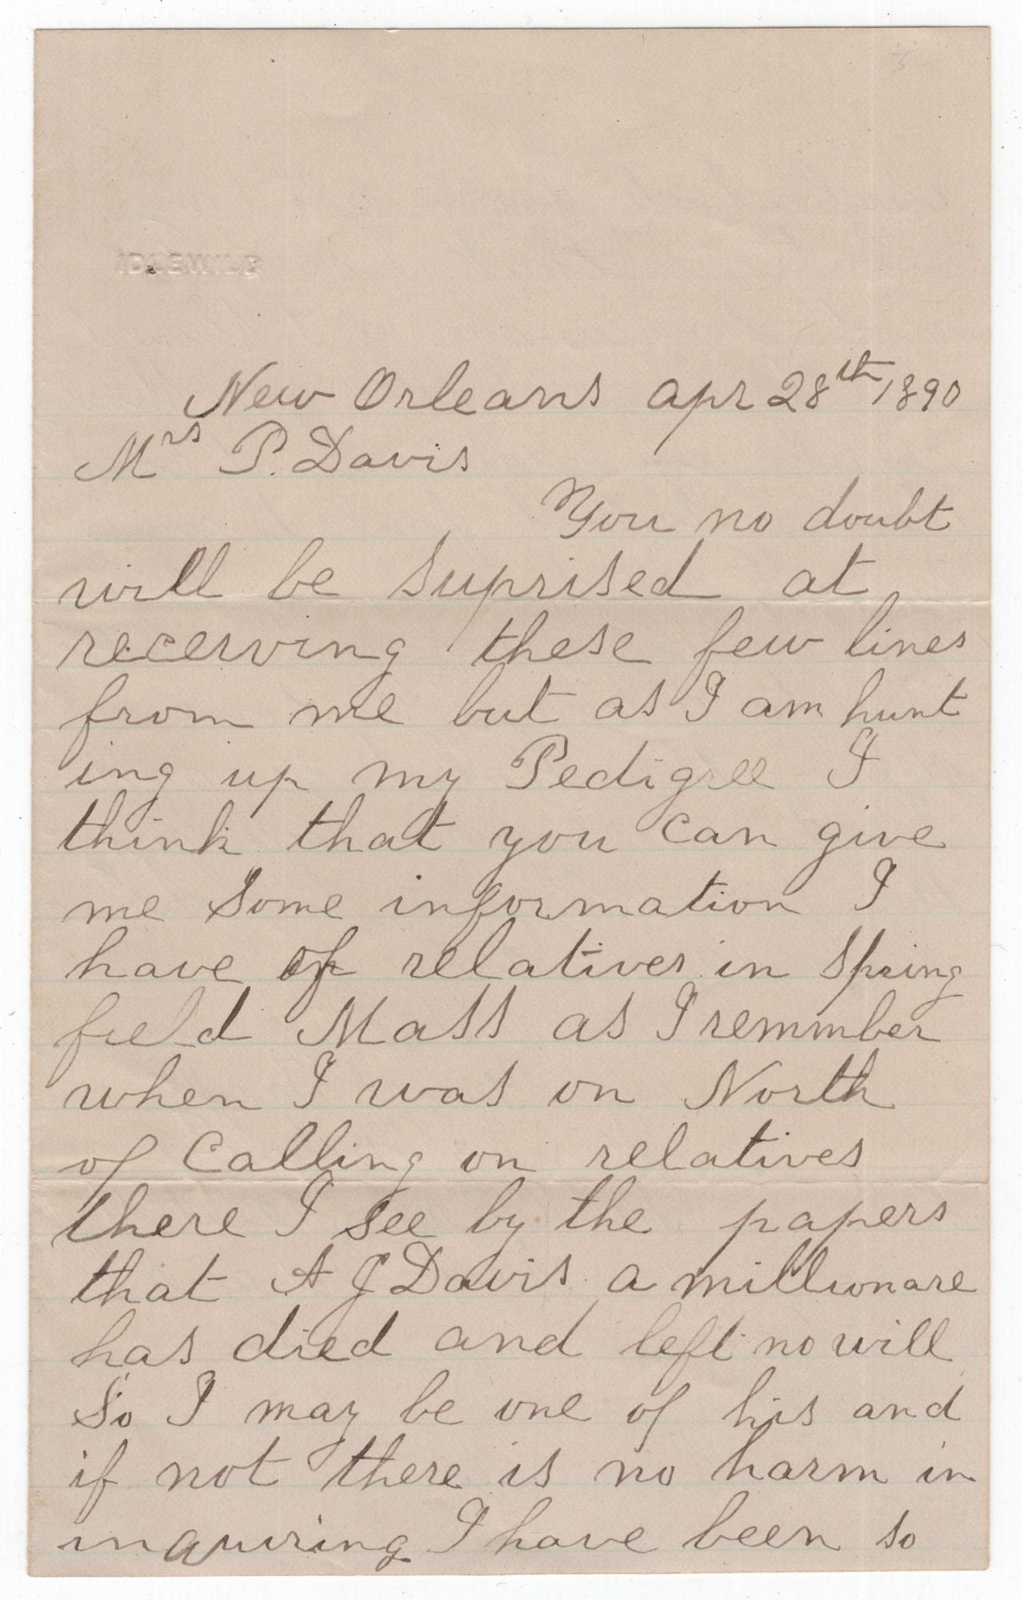 IDLEWILD
New Orleans apr 28th 1890
Mrs P. Davis
You no doubt
will be suprised at
receiving these few lines
from me but as I am hunt
ing up my Pedigree I
think that you can give
me some information I
have of relatives in Spring
field Mass as I remmber
when I was on North
of Calling on relatives
there I see by the papers
that A J Davis a millionare
has died and left no will
So I may be one of his and
if not there is no harm in
inquiring I have been so